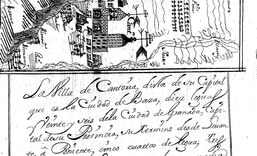 La Villa de Cantoria, dista de su Capital
que es la Ciudad de Baza, diez leguas
Veinte y seis de la Ciudad de Granada, Capi-
tal de su Provincia, su termino desde Levan-
te a Poniente, cinco cuartos de legua,